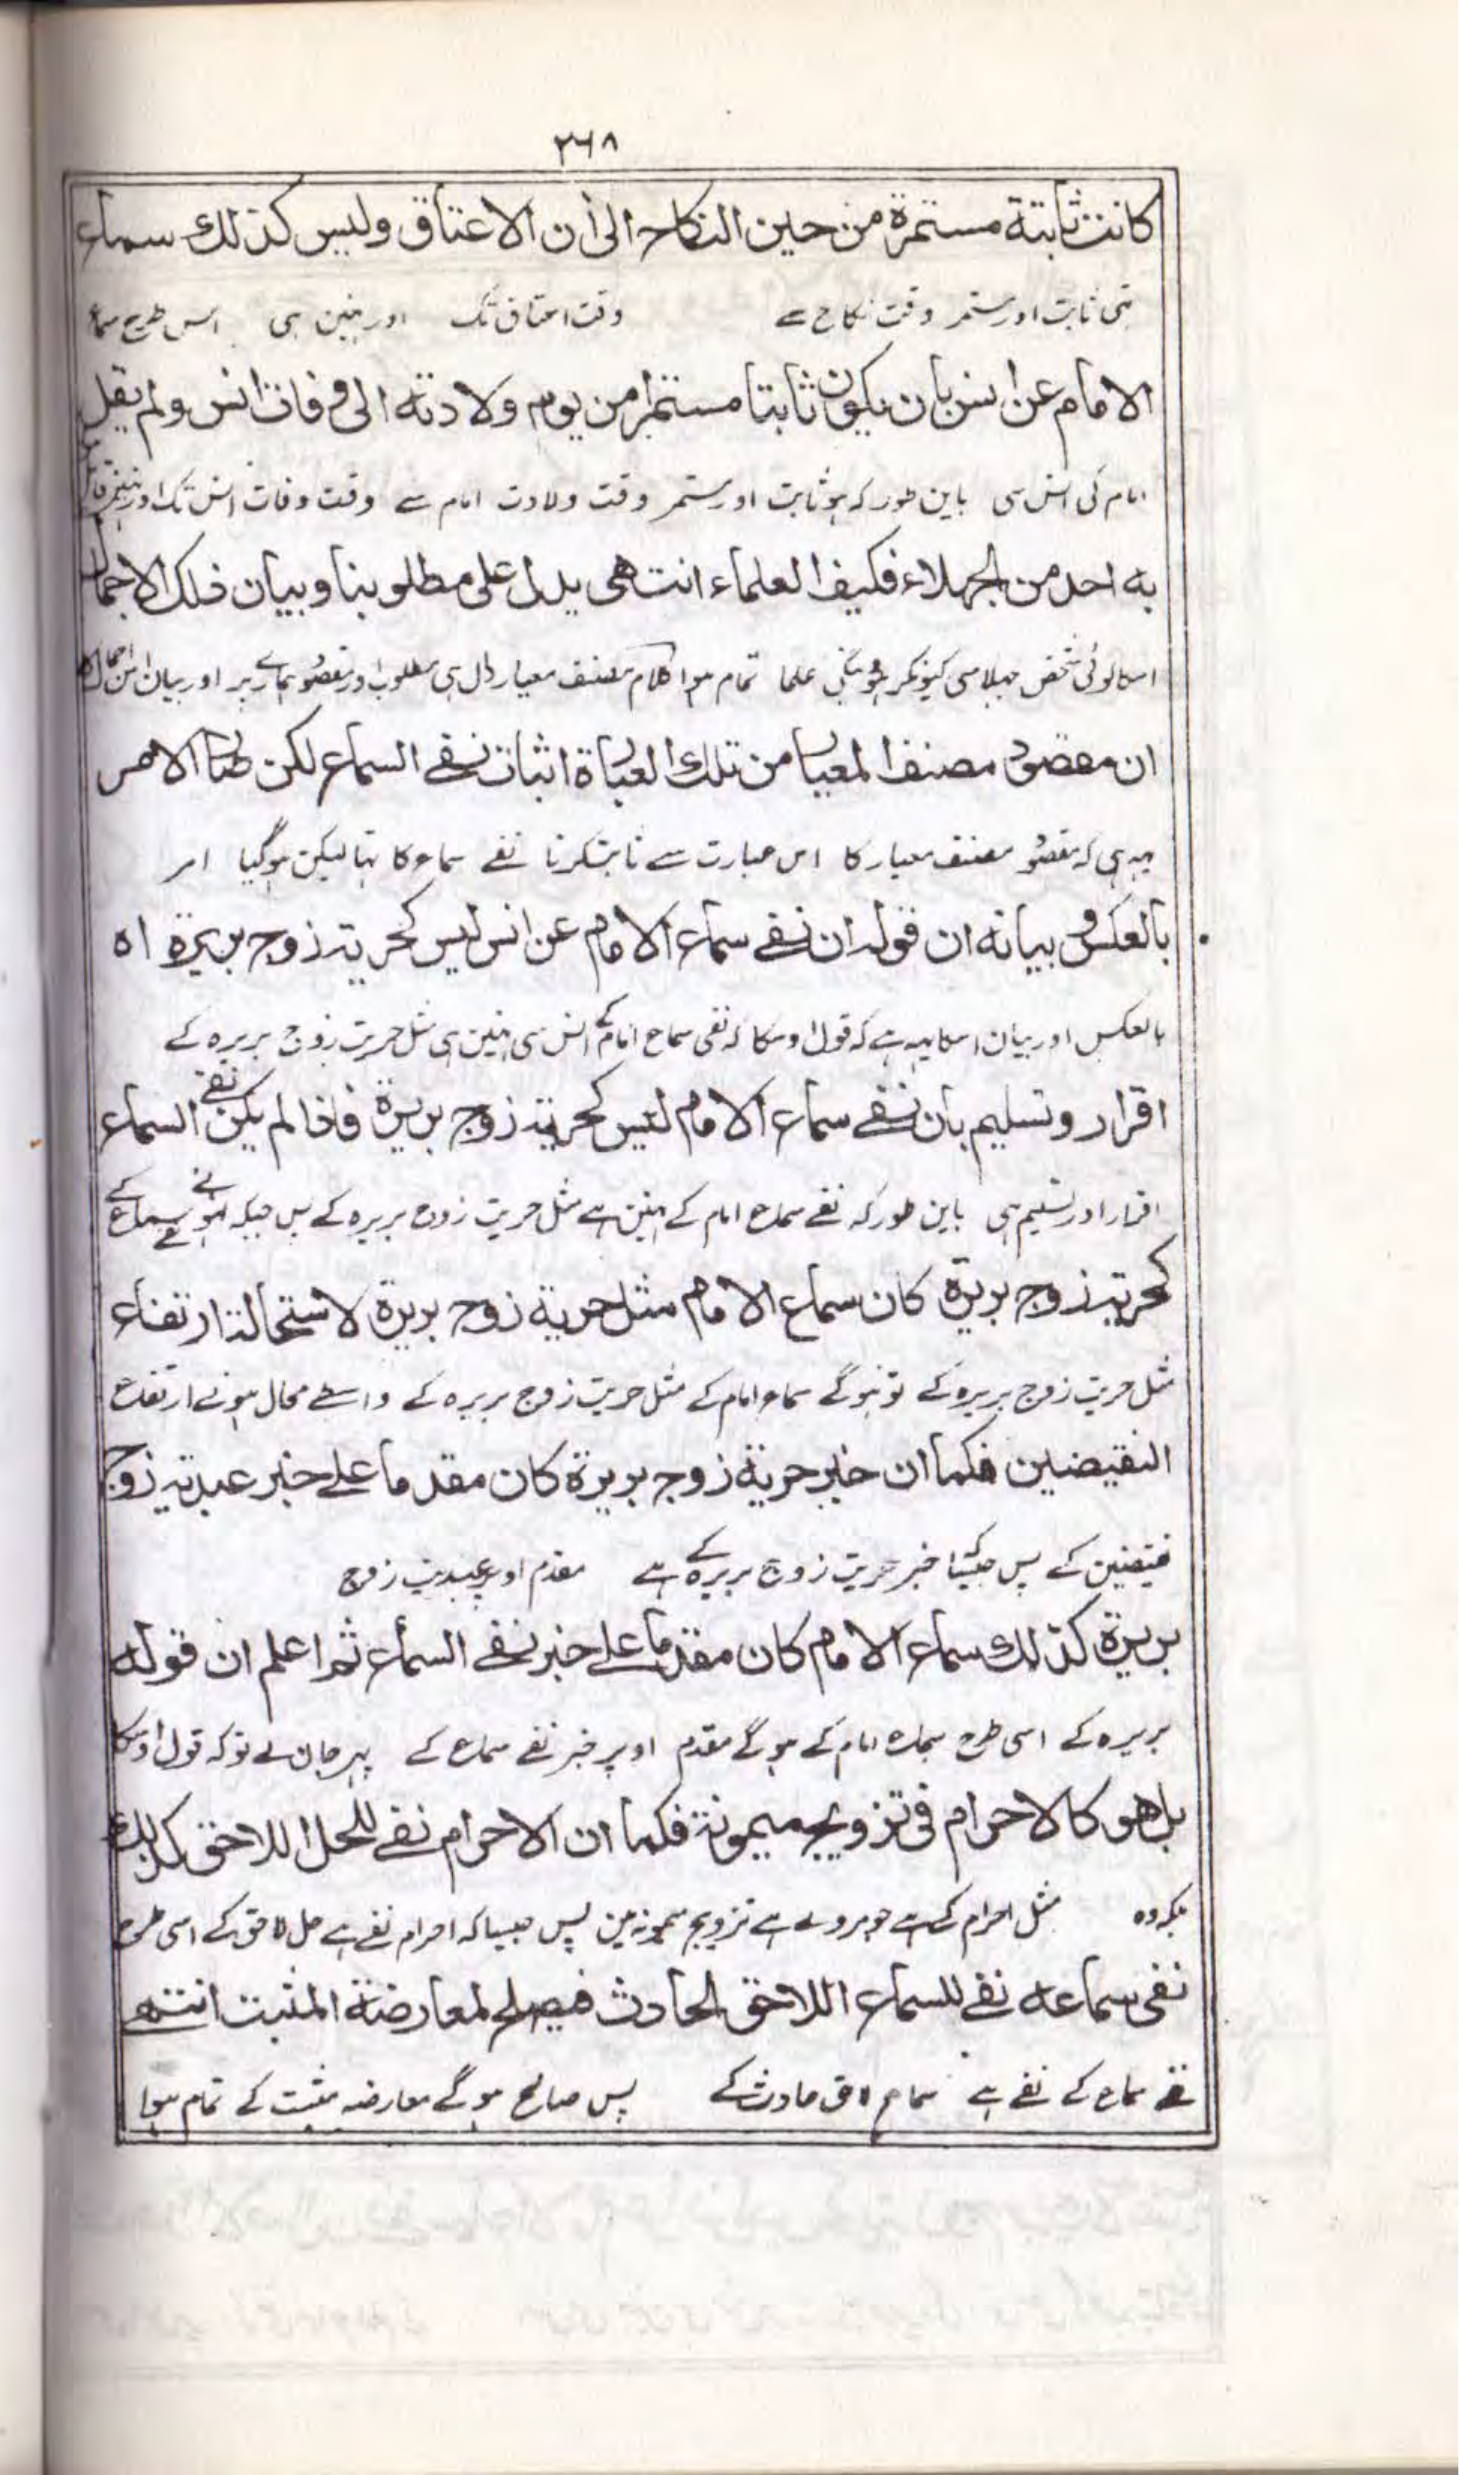 ٢٦٨
كانت ثابتة مستمرة من حين النكاح الى أن الاعتاق وليس كذلك سماع
تھی ثابت اور مستمر وقت نکاح سے وقت اعتاق تک اور نہین ہی اس طرح سماع
الامام عن انس بان يكون ثابتا مستمرا من يوم ولادته الى وفات انس ولم يقل
امام کی انس سی باین طور کہ ہو ثابت اور مستمر وقت ولادت امام سے وقت وفات انس تک اور نہین قائل
به احد من الجهلاء فكيف العلماء انتهى يدل على مطلوبنا وبيان ذلك الاجمال
اسکا کوئی شخص جہلا سی کیونکر ہونگی علما تمام ہوا کلام مصنف معیار دال ہی مطلوب اور مقصود ہمارے پر اور بیان اس اجمال کا
ان مقصود مصنف المعيار من تلك العبارة اثبات نفے السماع لكن صار الامر
یہہ ہی کہ مقصود مصنف معیار کا اس عبارت سے ثابت کرنا نفے سماع کا تہا لیکن ہوگیا امر
بالعكس و بيانه ان قوله ان نفے سماع الامام عن انس ليس كحرية زوج بريرة اه
بالعکس اور بیان اسکا یہہ ہے کہ قول اوسکا کہ نفی سماع امام کے انس سی نہین ہی مثل حریت زوج بریرہ کے
اقرار وتسليم بأن نفے سماع الامام ليس كحرية زوج بريرة فاذا لم يكن نفے السماع
اقرار اور تسلیم ہی باین طور کہ نفے سماع امام کے نہین ہے مثل حریت زوج بریرہ کے پس جبکہ نہوئے نفے سماع کے
كحرية زوج بريرة كان سماع الامام مثل حرية زوج بريرة لاستحالة ارتفاع
مثل حریت زوج بریرہ کے تو ہوگے سماع امام کے مثل حریت زوج بریرہ کے واسطے محال ہونے ارتفاع
النقيضين فكما ان خبر حرية زوج بريرة كان مقدما علے خبر عبدية زوج
نقیضین کے پس جیسا خبر حریت زوج بریرہ کے ہے مقدم اوپر عبدیت زوج
بريرة كذلك سماع الامام كان مقدما علے خبر نفے السماع ثم اعلم ان قوله
بریرہ کے اسی طرح سماع امام کے ہوگے مقدم اوپر خبر نفے سماع کے پہر جان لے تو کہ قول اوسکا
بل هو كالاحرام فى تزويج ميمونة فكما ان الاحرام نفے للحل اللاحق كذلك
بلکہ وہ مثل احرام کے ہے جو مروے ہے تزویج میمونہ مین پس جیسا کہ احرام نفے ہے حل لاحق کے اسی طرح
نفى سماعه نفے للسماع اللاحق الحادث فيصلح لمعارضة المثبت انتهے
نفے سماع کے نفے ہے سماع لاحق حادث کے پس صالح ہوگے معارضہ مثبت کے تمام ہوا